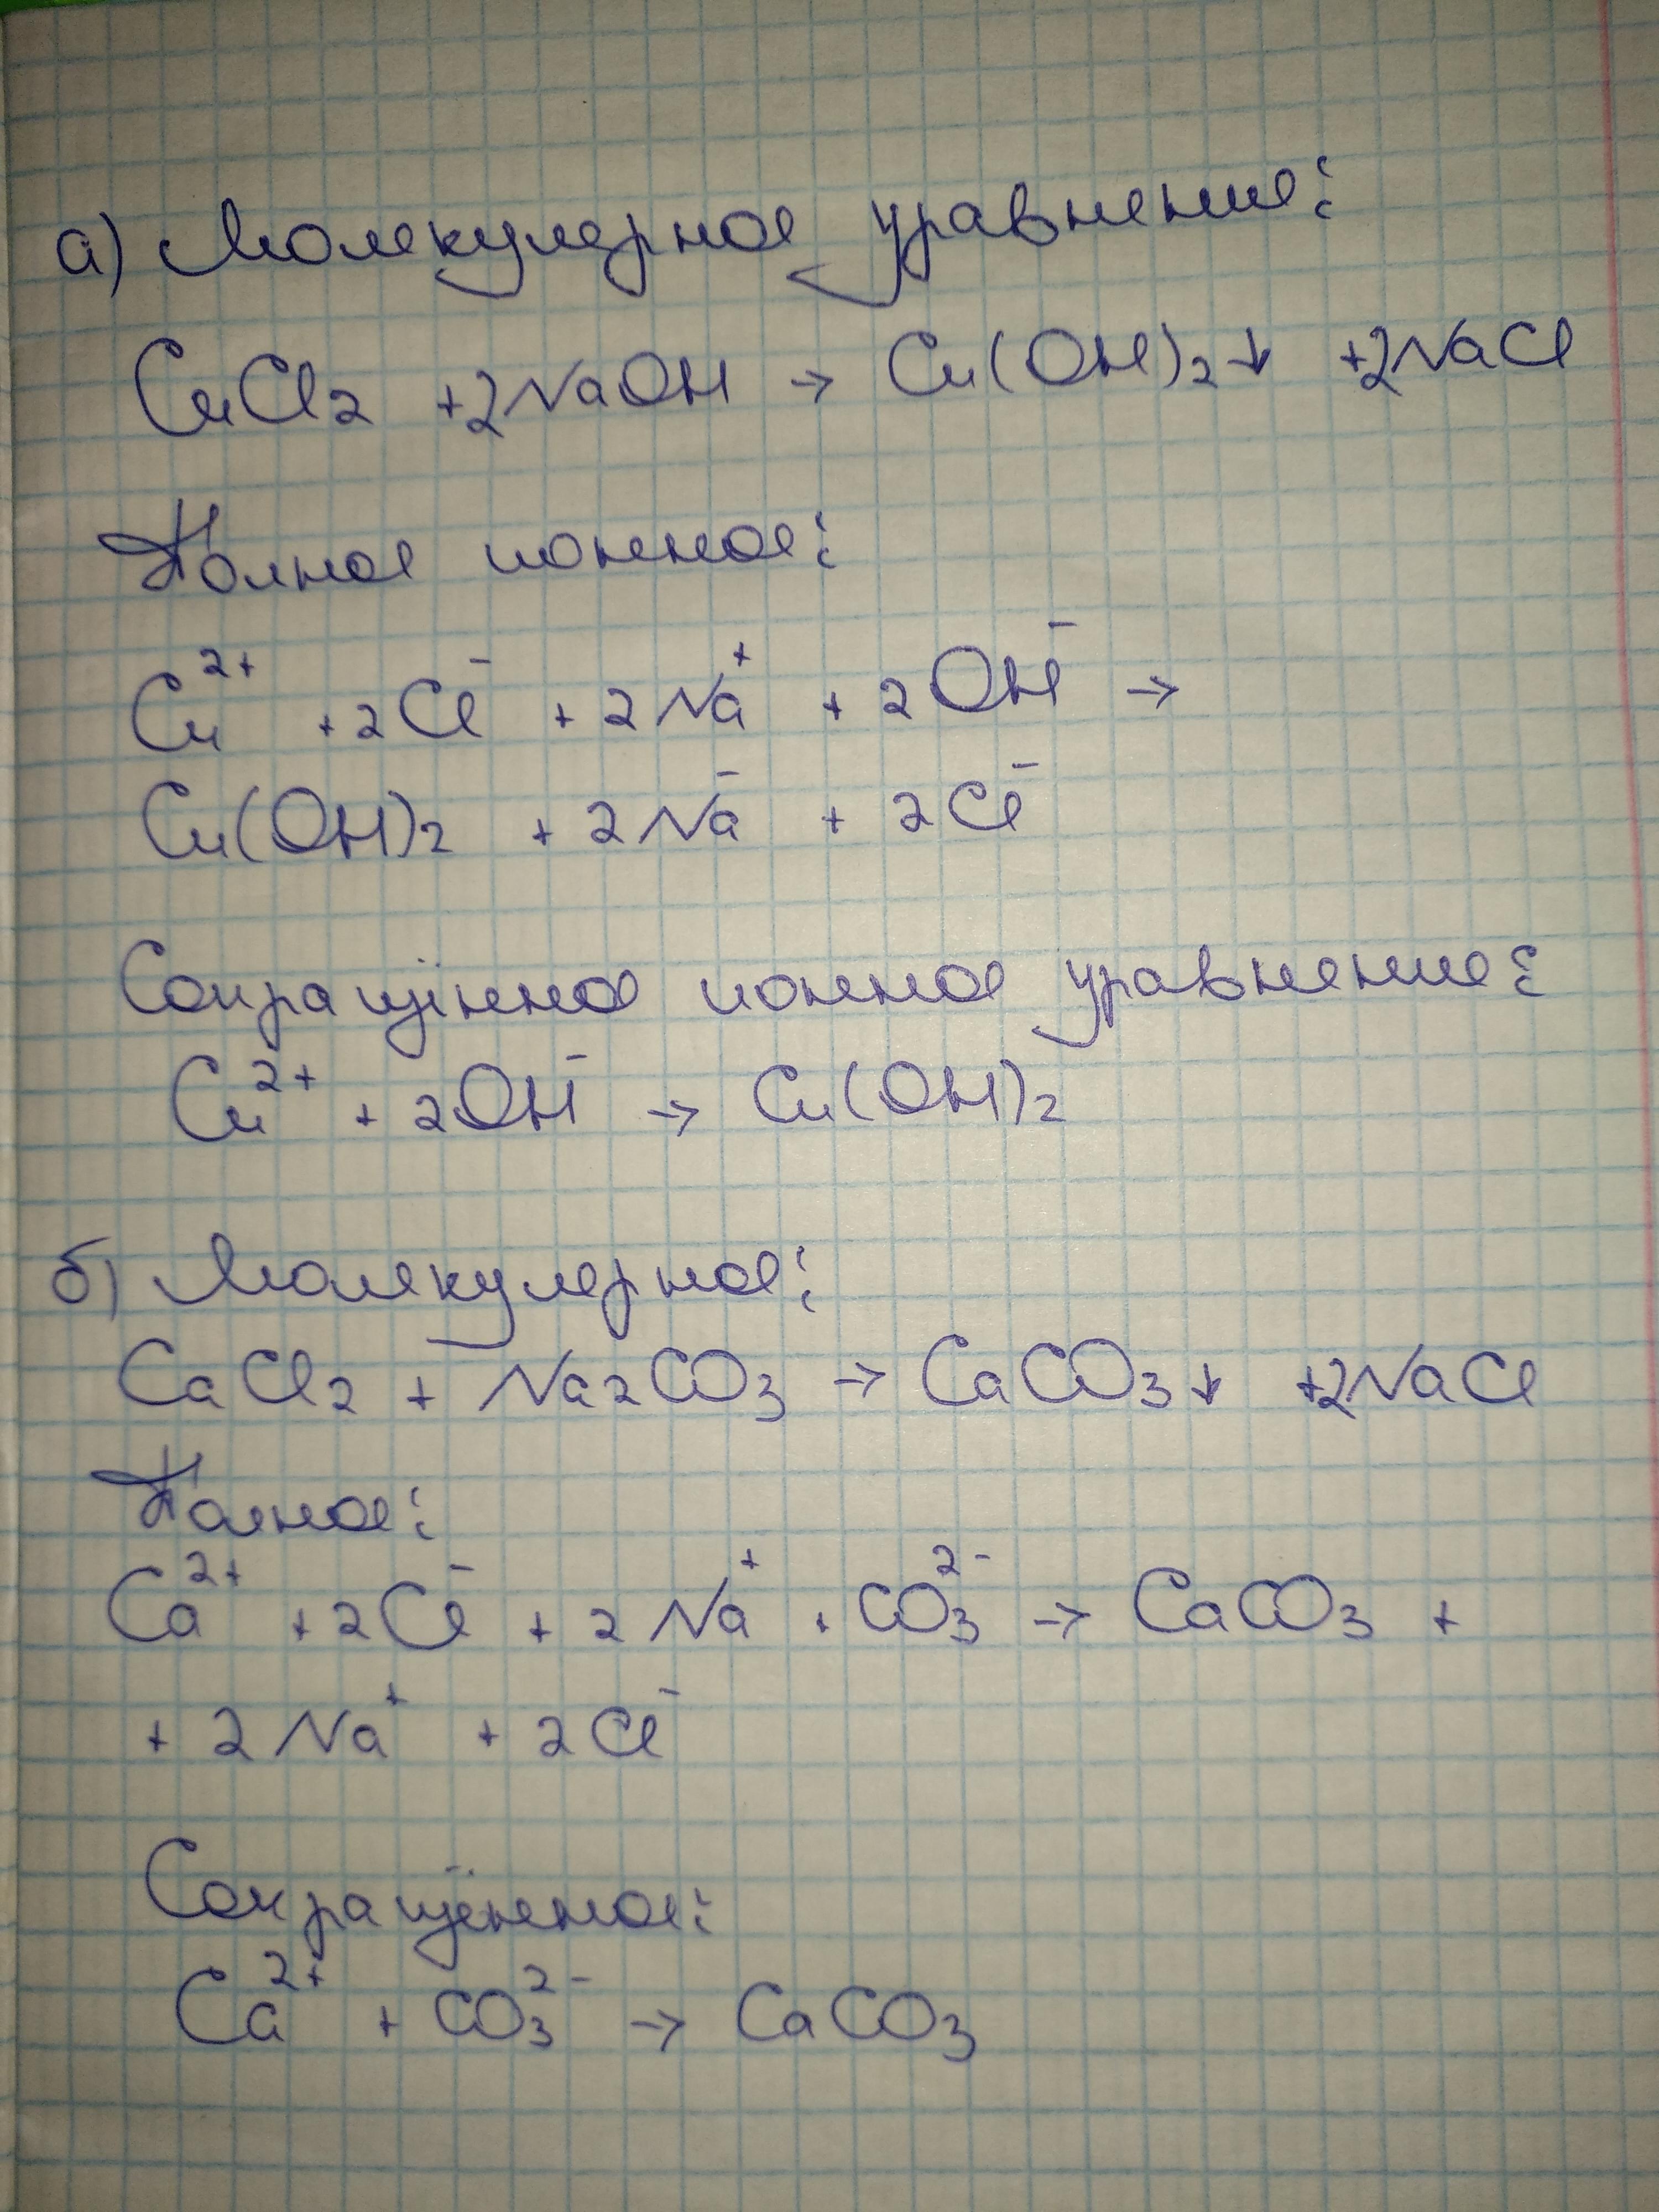 а) Молекулярное уравнение:
CuCl₂ +2NaOH → Cu(OH)₂↓ +2NaCl
Полное ионное:
Cu²⁺ +2Cl⁻ + 2Na⁺ + 2OH⁻ →
Cu(OH)₂ + 2Na⁻ + 2Cl⁻
Сокращённое ионное уравнение:
Cu²⁺ + 2OH⁻ → Cu(OH)₂
б) Молекулярное:
CaCl₂ + Na₂CO₃ → CaCO₃↓ +2NaCl
Полное:
Ca²⁺ +2Cl⁻ + 2Na⁺ + CO₃²⁻ → CaCO₃ +
+ 2Na⁺ + 2Cl⁻
Сокращённое:
Ca²⁺ + CO₃²⁻ → CaCO₃